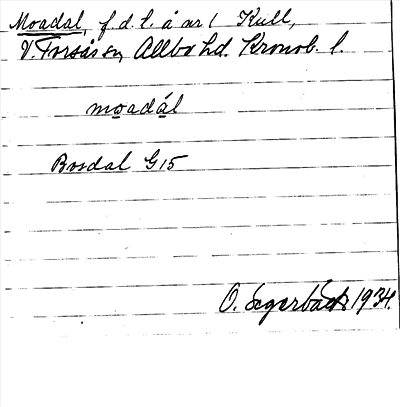 Moadal, f.d.l. å nr 1 Kull,
V. Torsås sn, Allbo hd. Kronob. l.
moadál
Bosdal G15
O. Segerbäck 1934.